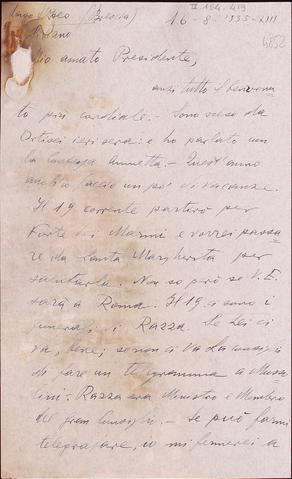 II 164.413
16-8-1935-XIII
4052
(Brescia)
Mio amato Presidente,
anzi tutto
to più cordiale. - Sono sceso da
Ortisei ieri sera: e ho parlato con
la Annetta. - Quest'anno
anch'io faccio un po' di vacanze.
Il 19 corrente partirò per
Forte dei Marmi e vorrei passa
re da Santa Margherita per
salutarla. Non so però se V.E.
sarà a Roma. Il 19 ci sono i
funerali di Razza. Se Lei ci
va, bene; se non ci va La consiglio
di fare un telegramma a Musso
lini. Razza era Ministro e Membro
del Gran Consiglio. - Se può farmi
telegrafare, io mi fermerei a